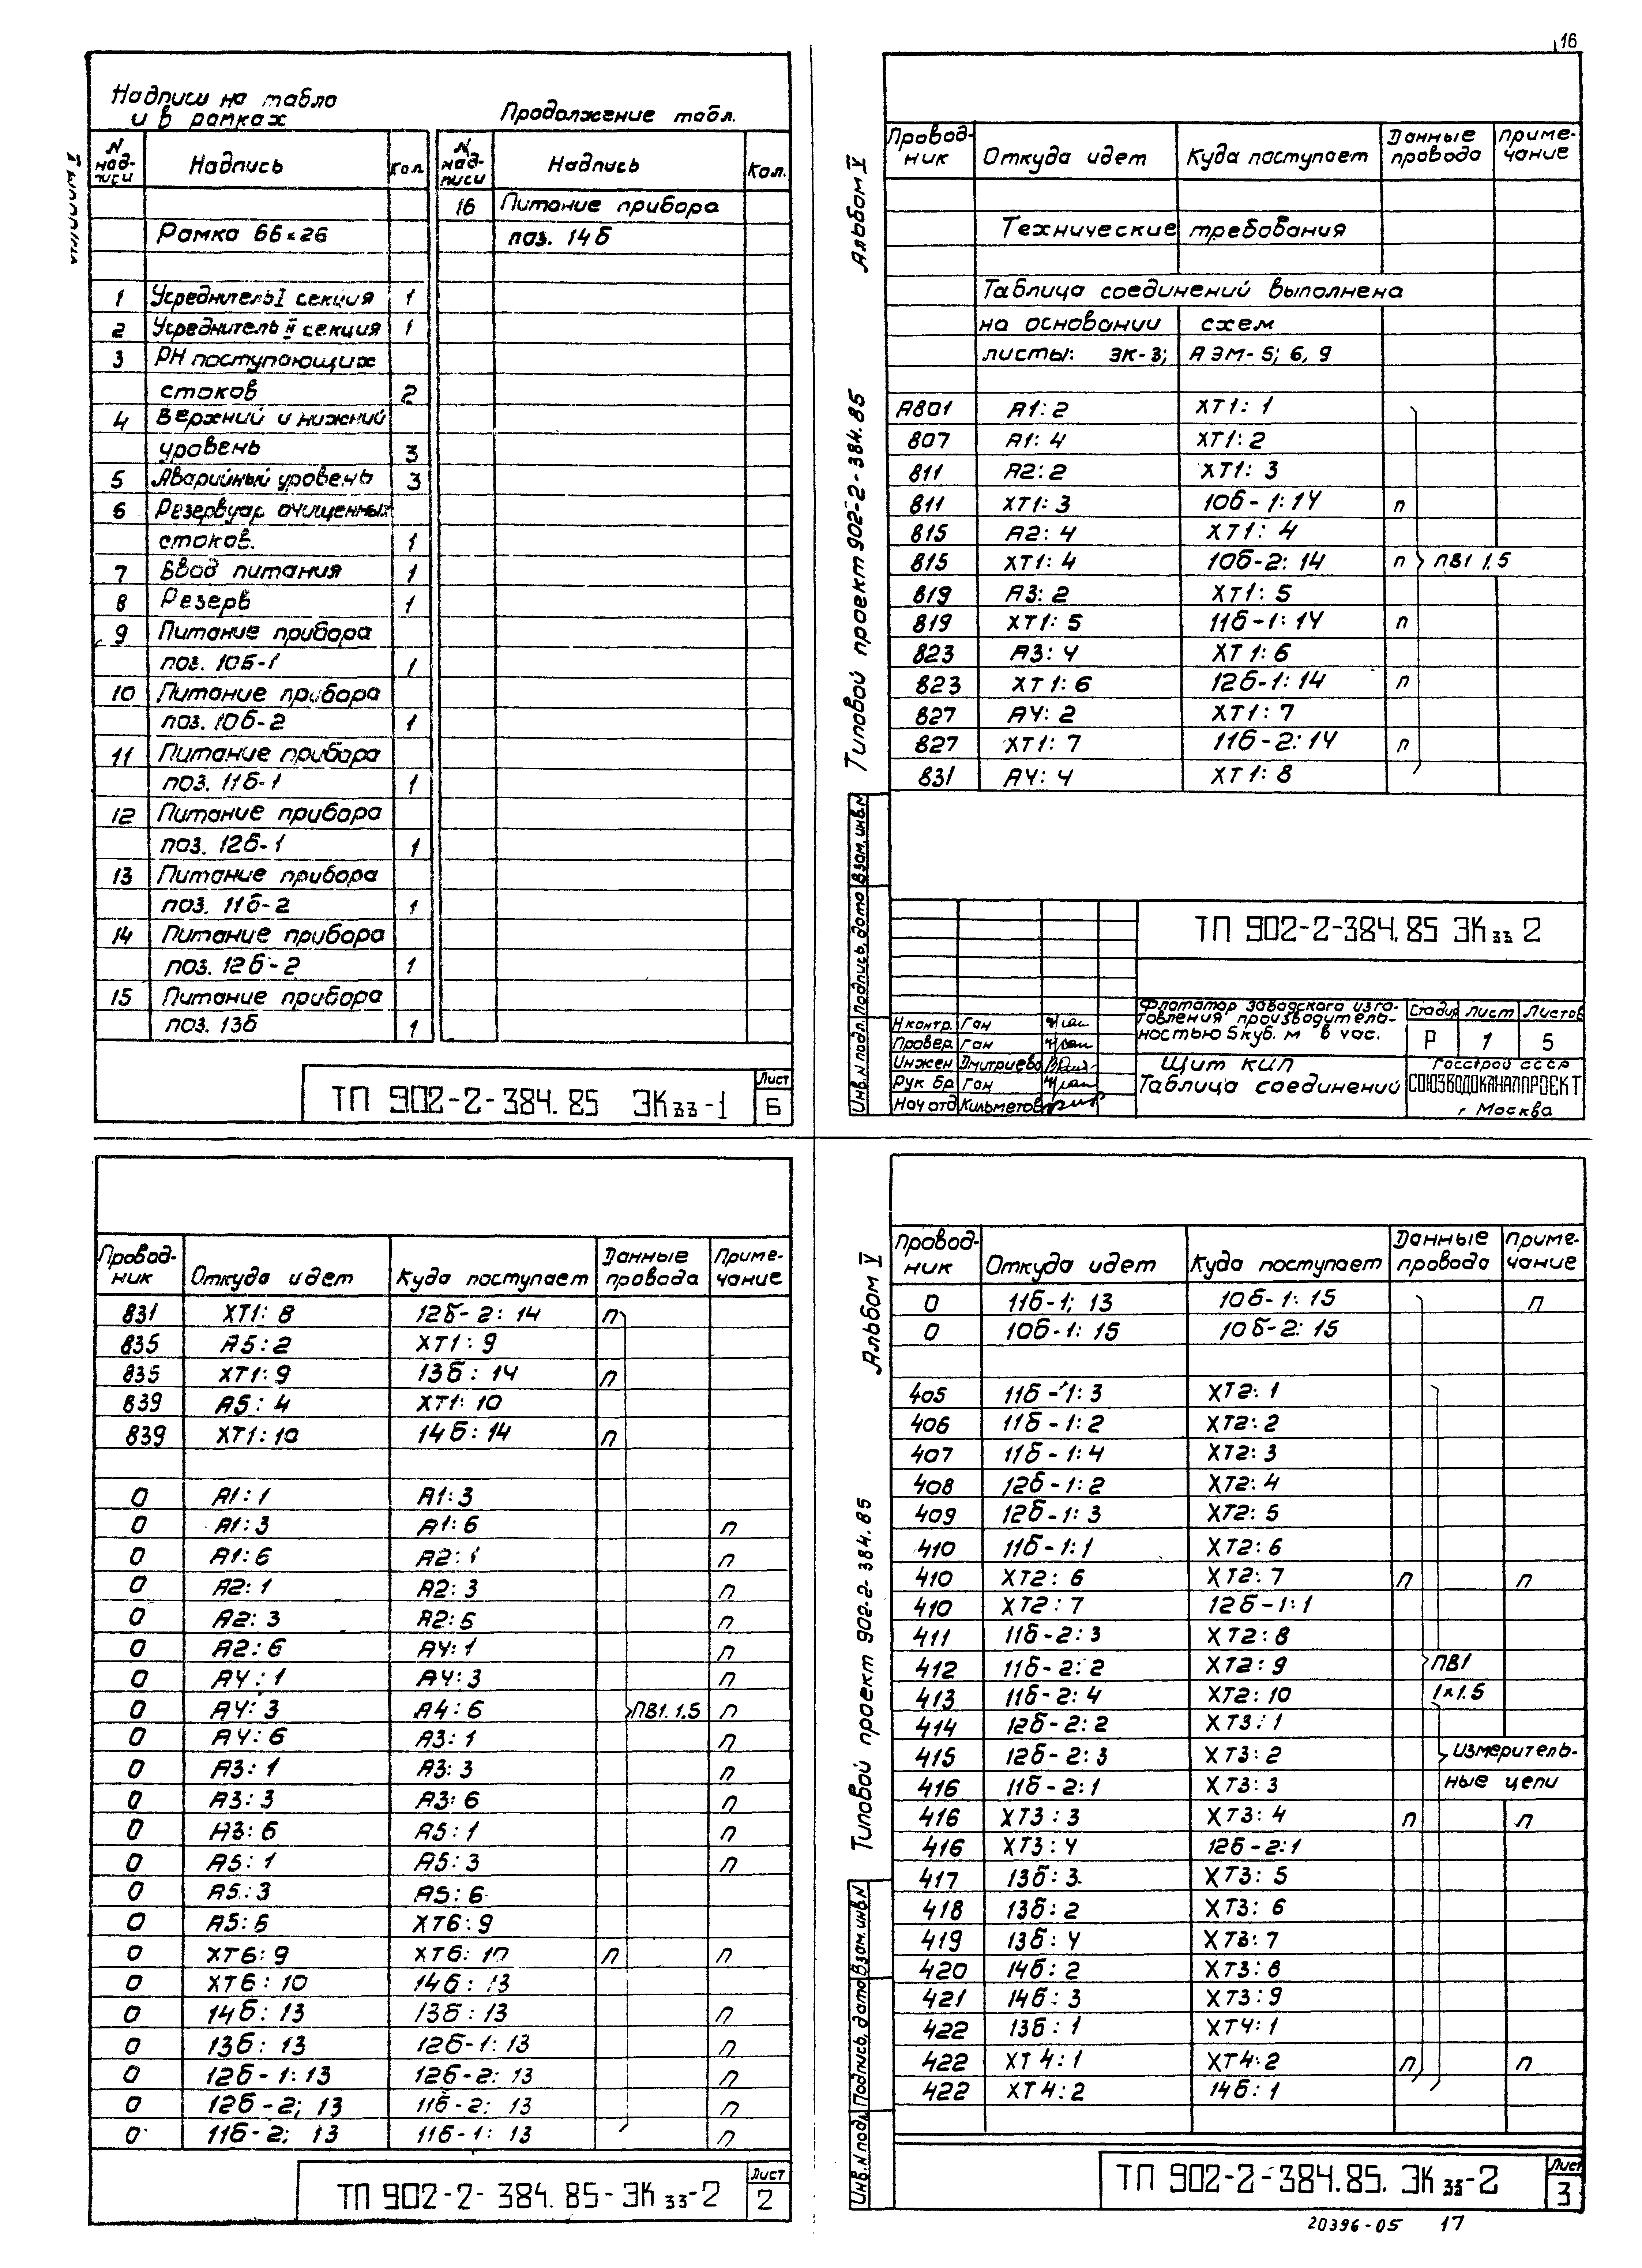 16
Надписи на табло
и в рамках
Продолжение табл.
N надписи | Надпись | Кол. | N надписи | Надпись | Кол.
16 Питание прибора
Рамка 66×26
поз. 14б
1 Усреднитель I секция 1
2 Усреднитель II секция 1
3 РН поступающих
стоков 2
4 Верхний и нижний
уровень 3
5 Аварийный уровень 3
6 Резервуар очищенных
стоков. 1
7 Ввод питания 1
8 Резерв 1
9 Питание прибора
поз. 10б-1 1
10 Питание прибора
поз. 10б-2 1
11 Питание прибора
поз. 11б-1 1
12 Питание прибора
поз. 12б-1 1
13 Питание прибора
поз. 11б-2 1
14 Питание прибора
поз. 12б-2 1
15 Питание прибора
поз. 13б 1
ТП 902-2-384.85 ЭКзз-1
Лист
Б
Типовой проект 902-2-384.85 Альбом V
Проводник | Откуда идет | Куда поступает | Данные провода | Примечание
Технические требования
Таблица соединений выполнена
на основании схем
листы: ЭК-3; АЭМ-5; 6, 9
А801 А1:2 ХТ1:1
807 А1:4 ХТ1:2
811 А2:2 ХТ1:3
811 ХТ1:3 10б-1:14 п
815 А2:4 ХТ1:4
815 ХТ1:4 10б-2:14 п ПВ1 1.5
819 А3:2 ХТ1:5
819 ХТ1:5 11б-1:14 п
823 А3:4 ХТ1:6
823 ХТ1:6 12б-1:14 п
827 А4:2 ХТ1:7
827 ХТ1:7 11б-2:14 п
831 А4:4 ХТ1:8
Инв. N подл. Подпись, дата Взам. инв. N
ТП 902-2-384.85 ЭКзз 2
Флотатор заводского изго-
товления производитель-
ностью 5 куб. м в час.
Стадия Лист Листов
Р 1 5
Н контр. Ган
Провер Ган
Инжен Дмитриева
Рук бр Ган
Нач отд Кильметов
Щит КИП
Таблица соединений
Госстрой СССР
СОЮЗВОДОКАНАЛПРОЕКТ
г Москва
Проводник | Откуда идет | Куда поступает | Данные провода | Примечание
831 ХТ1:8 12б-2:14 п
835 А5:2 ХТ1:9
835 ХТ1:9 13б:14 п
839 А5:4 ХТ1:10
839 ХТ1:10 14б:14 п
0 А1:1 А1:3
0 А1:3 А1:6 п
0 А1:6 А2:1 п
0 А2:1 А2:3 п
0 А2:3 А2:6 п
0 А2:6 А4:1 п
0 А4:1 А4:3 п
0 А4:3 А4:6 ПВ1.1.5 п
0 А4:6 А3:1 п
0 А3:1 А3:3 п
0 А3:3 А3:6 п
0 А3:6 А5:1 п
0 А5:1 А5:3 п
0 А5:3 А5:6
0 А5:6 ХТ6:9
0 ХТ6:9 ХТ6:10 п п
0 ХТ6:10 14б:13
0 14б:13 13б:13 п
0 13б:13 12б-1:13 п
0 12б-1:13 12б-2:13 п
0 12б-2; 13 11б-2: 13 п
0 11б-2; 13 11б-1: 13 п
ТП 902-2-384.85-ЭКзз-2
Лист
2
Типовой проект 902-2-384.85 Альбом V
Проводник | Откуда идет | Куда поступает | Данные провода | Примечание
0 11б-1; 13 10б-1:15 п
0 10б-1:15 10б-2:15
405 11б-1:3 ХТ2:1
406 11б-1:2 ХТ2:2
407 11б-1:4 ХТ2:3
408 12б-1:2 ХТ2:4
409 12б-1:3 ХТ2:5
410 11б-1:1 ХТ2:6
410 ХТ2:6 ХТ2:7 п п
410 ХТ2:7 12б-1:1
411 11б-2:3 ХТ2:8
412 11б-2:2 ХТ2:9 ПВ1
413 11б-2:4 ХТ2:10 1х1.5
414 12б-2:2 ХТ3:1
415 12б-2:3 ХТ3:2 Измеритель-
416 11б-2:1 ХТ3:3 ные цепи
416 ХТ3:3 ХТ3:4 п п
416 ХТ3:4 12б-2:1
417 13б:3 ХТ3:5
418 13б:2 ХТ3:6
419 13б:4 ХТ3:7
420 14б:2 ХТ3:8
421 14б:3 ХТ3:9
422 13б:1 ХТ4:1
422 ХТ4:1 ХТ4:2 п п
422 ХТ4:2 14б:1
Инв. N подл. Подпись, дата Взам. инв. N
ТП 902-2-384.85. ЭКзз-2
Лист
3
20396-05 17